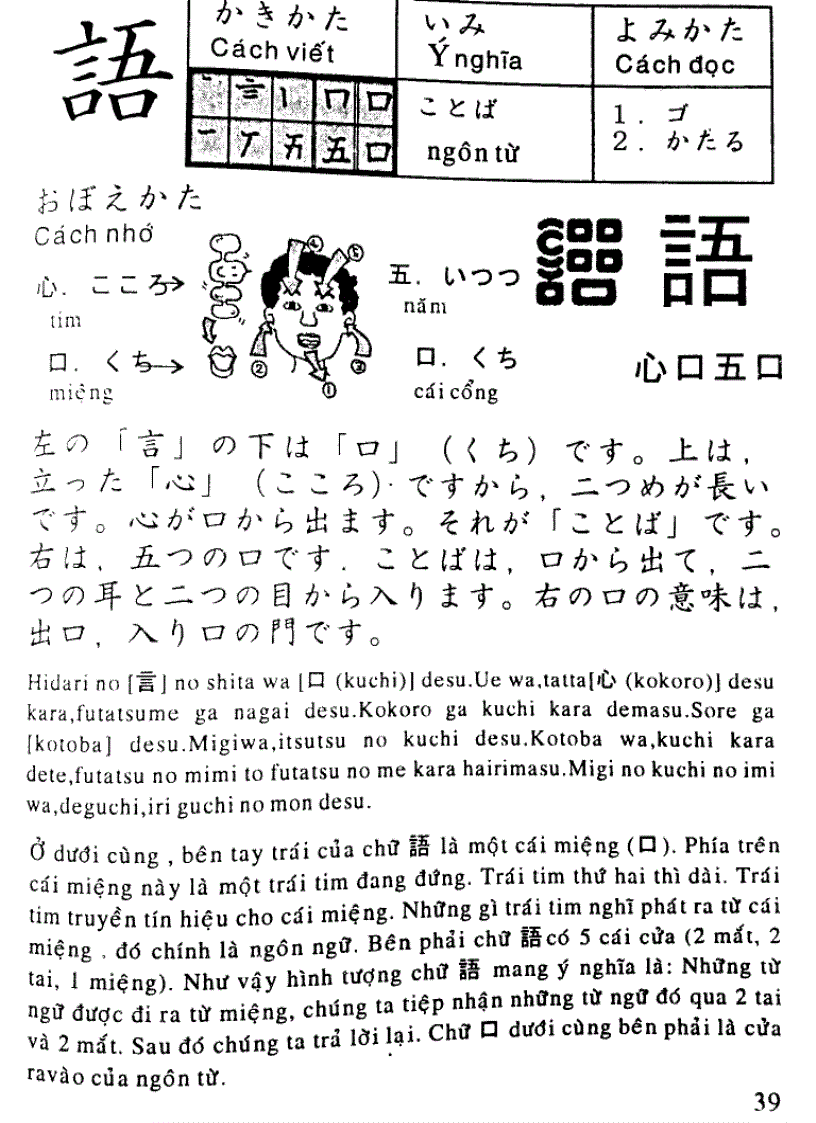 語
かきかた
Cách viết
いみ
Ý nghĩa
よみかた
Cách đọc
ことば
ngôn từ
1. ゴ
2. かたる
おぼえかた
Cách nhớ
心. こころ→
tim
口. くち→
miệng
① ② ③ ④ ⑤
五. いつつ
năm
口. くち
cái cổng
語
心口五口
左の「言」の下は「口」(くち)です。上は,
立った「心」(こころ)ですから,二つめが長い
です。心が口から出ます。それが「ことば」です。
右は,五つの口です.ことばは,口から出て,二
つの耳と二つの目から入ります。右の口の意味は,
出口,入り口の門です。
Hidari no [言] no shita wa [口 (kuchi)] desu.Ue wa,tatta[心 (kokoro)] desu
kara,futatsume ga nagai desu.Kokoro ga kuchi kara demasu.Sore ga
[kotoba] desu.Migiwa,itsutsu no kuchi desu.Kotoba wa,kuchi kara
dete,futatsu no mimi to futatsu no me kara hairimasu.Migi no kuchi no imi
wa,deguchi,iri guchi no mon desu.
Ở dưới cùng , bên tay trái của chữ 語 là một cái miệng (口). Phía trên
cái miệng này là một trái tim đang đứng. Trái tim thứ hai thì dài. Trái
tim truyền tín hiệu cho cái miệng. Những gì trái tim nghĩ phát ra từ cái
miệng , đó chính là ngôn ngữ. Bên phải chữ 語có 5 cái cửa (2 mắt, 2
tai, 1 miệng). Như vậy hình tượng chữ 語 mang ý nghĩa là: Những từ
ngữ được đi ra từ miệng, chúng ta tiệp nhận những từ ngữ đó qua 2 tai
và 2 mắt. Sau đó chúng ta trả lời lại. Chữ 口 dưới cùng bên phải là cửa
ravào của ngôn từ.
39